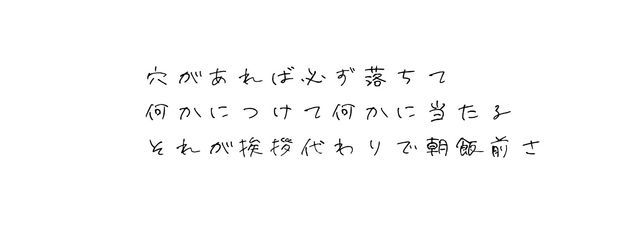 穴があれば必ず落ちて
何かにつけて何かに当たる
それが挨拶代わりで朝飯前さ